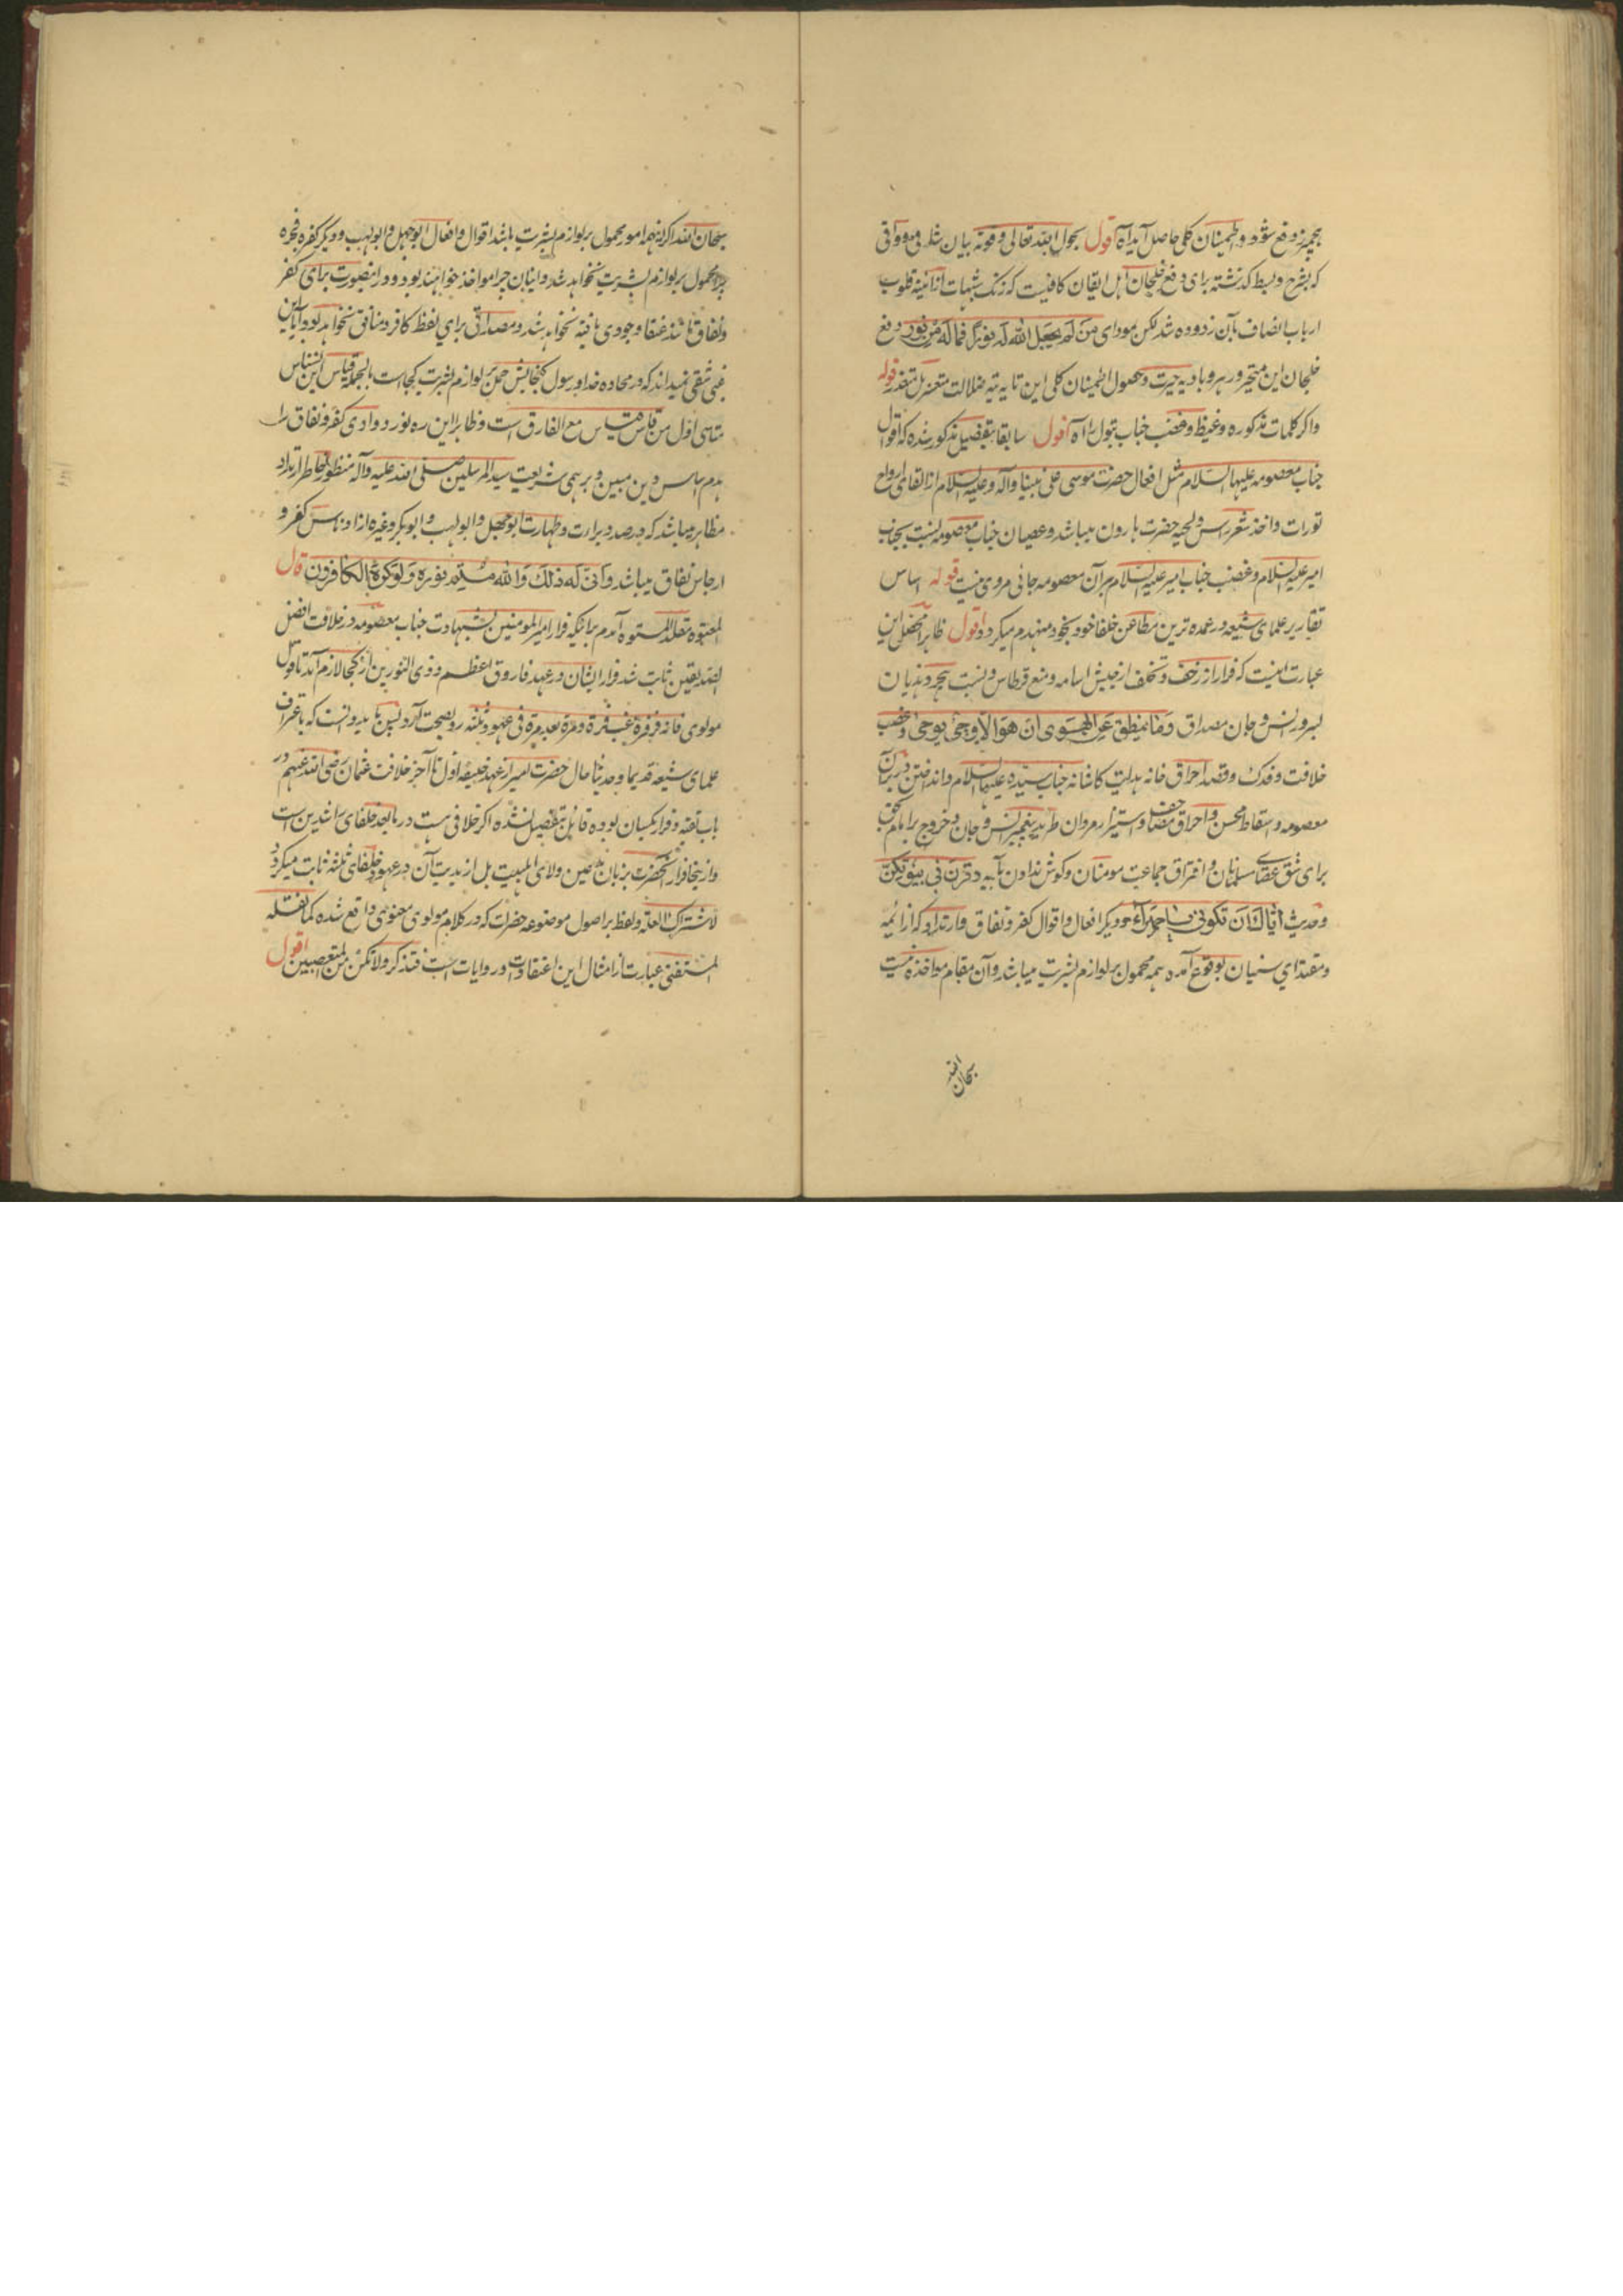 بچیز دفع شود و اطمینان کلی حاصل آید آه اقول بحول الله تعالی و قوته بیان شافی و وافی
که بشرح و بسط گذشته برای دفع خلجان اهل ایقان کافیست که زنگ شبهات از آئینه قلوب
ارباب انصاف بآن زدوده شد لکن مودای مَن لَم یجعل الله له نورًا فما له من نور دفع
خلجان این متحیر و رهرو بادیه حیرت و حصول اطمینان کلی این تایه تیه ضلالت متعذر قوله
و اگر کلمات مذکوره و غیظ و غضب جناب بتول را آه اقول سابقا بتفصیل مذکور شده که اقوال
جناب معصومه علیها السلام مثل افعال حضرت موسی علی نبینا و آله و علیه السلام از القای الواح
تورات و اخذ شعر راس و لحیه حضرت هارون میباشد و عصیان جناب معصومه نسبت بجناب
امیر علیه السلام و غضب جناب امیر علیه السلام بر آن معصومه جائی مروی نیست قوله اساس
تقاریر علمای شیعه در عمده ترین مطاعن خلفا خود بخود منهدم میگردد اقول ظاهرا محصل این
عبارت اینست که فرار از زحف و تخلف از جیش اسامه و منع قرطاس و نسبت هجر و هذیان
بسرور انس و جان مصداق وَمَا ینطق عن الهوی ان هو الا وحی یوحی و غصب
خلافت و فدک و قصد احراق خانه هدایت کاشانه جناب سیده علیها السلام و انداختن در بران
معصومه و اسقاط محسن و احراق مصاحف و استیزار مروان طرید پیغمبر انس و جان و خروج بر امام بحق
برای شق عصای مسلمانان و افتراق جماعت مومنان و گوش ندادن بآیه وقرن فی بیوتکن
و حدیث ایاك ان تكونی یا حمیراء و دیگر افعال و اقوال کفر و نفاق و ارتداد که از ائمه
و مقتدای سنیان بوقوع آمده همه محمول بر لوازم بشریت میباشد و آن مقام مواخذه نیست
سبحان الله
سبحان الله اگر اینهمه امور محمول بر لوازم بشریت باشد اقوال و افعال ابوجهل و ابولهب و دیگر کفره فجره
چرا محمول بر لوازم بشریت نخواهد شد و اینان چرا مواخذ خواهند بود و در اینصورت برای کفر
و نفاق مانند عنقا وجودی یافته نخواهد شد و مصداقی برای لفظ کافر و منافق نخواهد بود آیا این
غبی شقی نمیداند که در محاده خدا و رسول گنجایش حمل بر لوازم بشریت کجاست بالجمله قیاس این نسناس
متاسی اول من قاس قیاس مع الفارق است و ظاهرا این ره نورد وادی کفر و نفاق را
هدم اساس دین مبین و برهمی شریعت سید المرسلین صلی الله علیه و آله منظور خاطر ارتداد
مظاهر میباشد که درصدد براءت و طهارت ابوجهل و ابولهب و ابوبکر و غیره از ادناس کفر و
ارجاس نفاق میباشد و انی له ذلك والله متم نوره ولو كره الكافرون قال
المعتوه مقلد المستوه آمدم برانیکه فرار امیر المومنین بشهادت جناب معصومه در خلافت افضل
الصدیقین ثابت شد فرار ایشان در عهد فاروق اعظم و ذی النورین از کجا لازم آمد تا قول
مولوی فانه فر فرة غب فرة و مرة بعد مرة فی عهود ثلثه رو بصحت آرد پس باید دانست که باعتراف
علمای شیعه قدیما و حدیثا حال حضرت امیر از عهد خلیفه اول تا آخر خلافت عثمان رضی الله عنهم در
باب تقیه و فرار یکسان بوده قائل بتفصیل نشده اگر خلافی هست در ما بعد خلفای راشدین است
و از ینجا فرار آنحضرت بزبان مدعین ولای اهلبیت بل ازیدیت آن در عهود خلفای ثلثه ثابت میگردد
لاشتراك العلة و لفظ بر اصول موضوعه حضرات که در کلام مولوی معنوی واقع شده کما نقله
المستفتی عبارت از امثال این اعتقادات و روایات است فتذکر ولا تکن من المتعصبین اقول